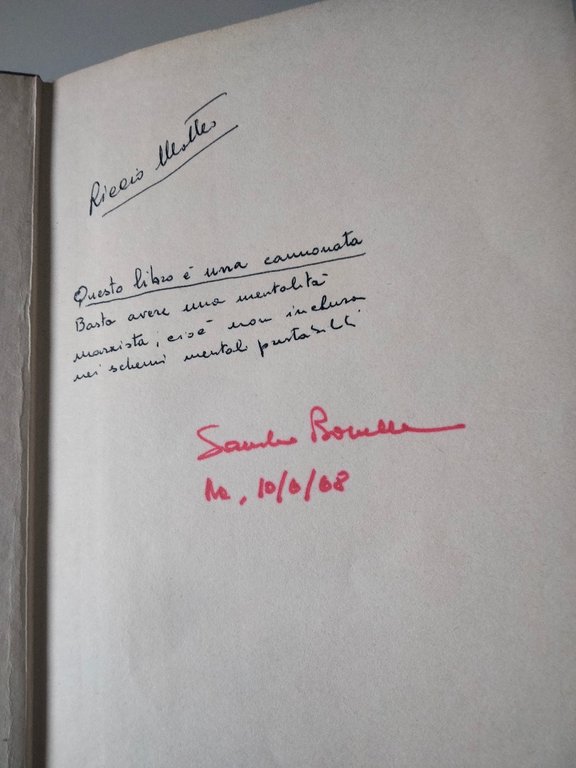 Riccio Matteo
Questo libro è una cannonata
Basta avere una mentalità
marxista, cioè non inclusa
nei schemi mentali prestabiliti
Sandro
Na, 10/6/68